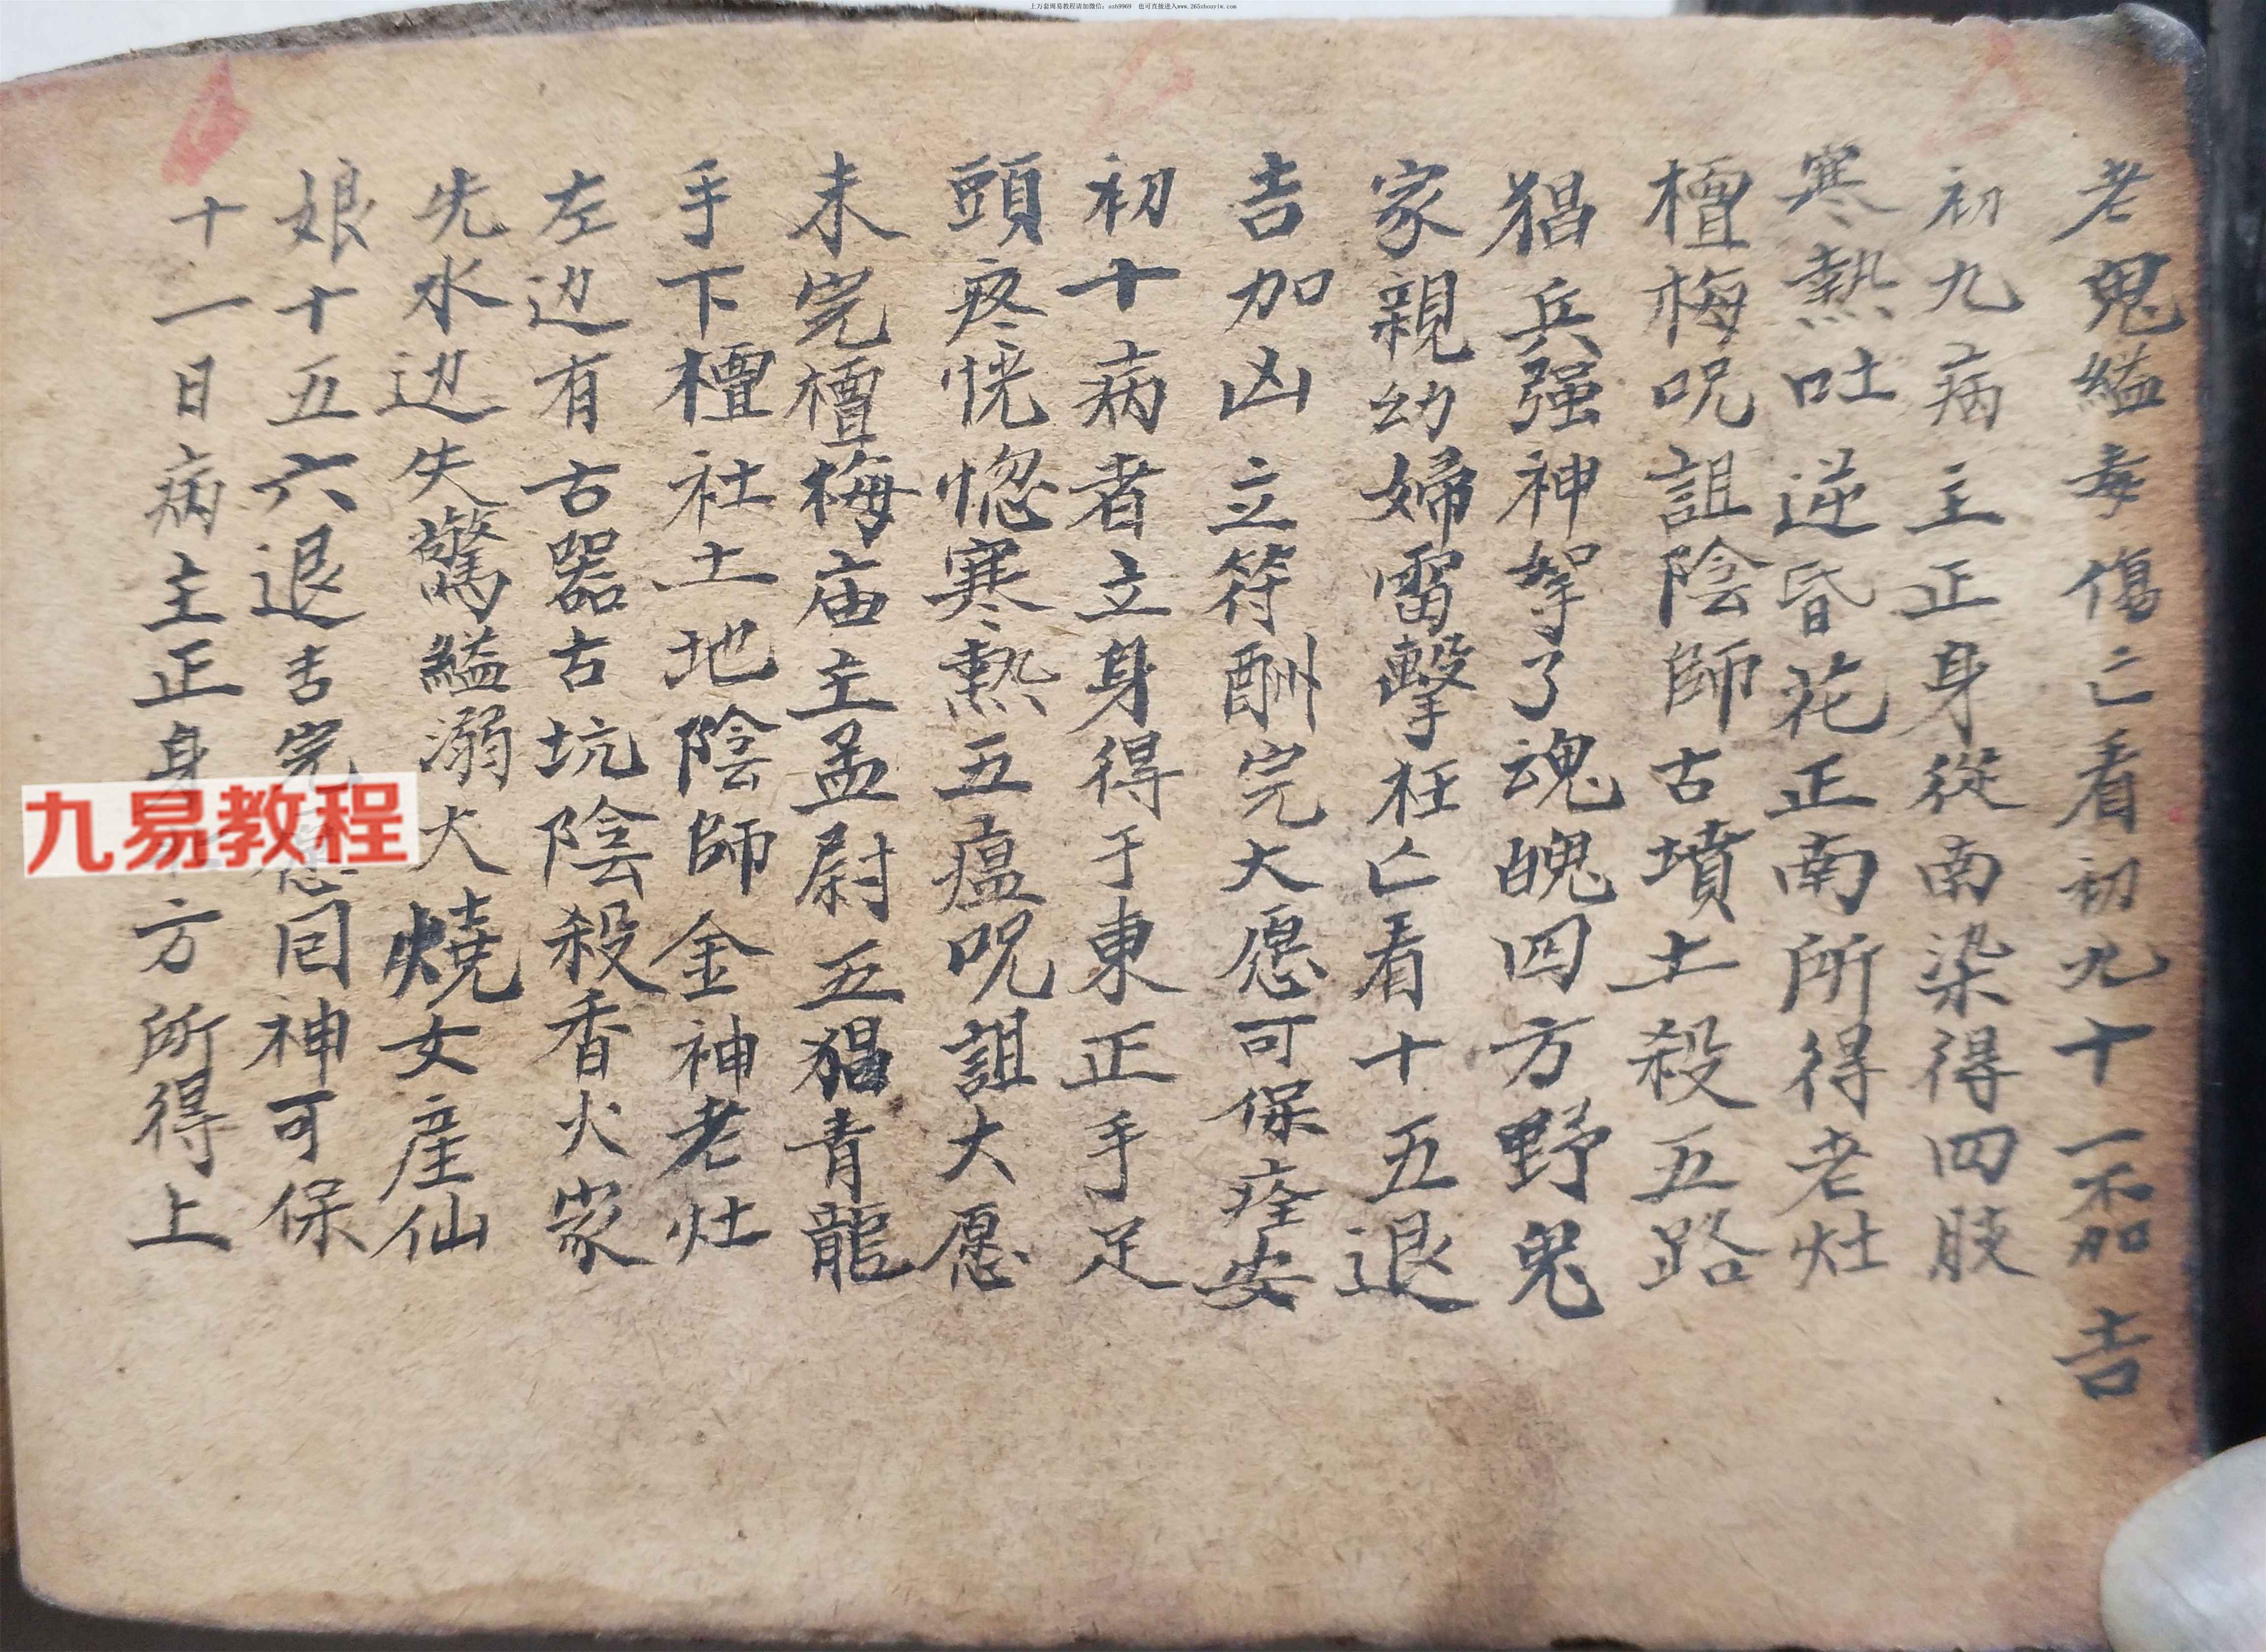 上万套周易教程请加微信：sxh9969　也可直接进入www.265zhouyiw.com
老鬼縊毒傷亡看初九十一不加吉
初九病主正身從南染得四肢
寒熱吐逆昏花正南所得老灶
檀梅呪詛陰師古墳土殺五路
猖兵强神拏了魂魄四方野鬼
家親幼婦雷擊枉亡看十五退
吉加凶立符酬完大愿可保痊安
初十病者立身得于東正手足
頭疼恍惚寒熱五瘟呪詛大愿
未完檀梅庙主孟尉五猖青龍
手下檀社土地陰師金神老灶
左边有古器古坑陰殺香火家
先水边失驚縊溺火燒女産仙
娘十五六退吉完愿回神可保
十一日病主正身方所得上
九易教程